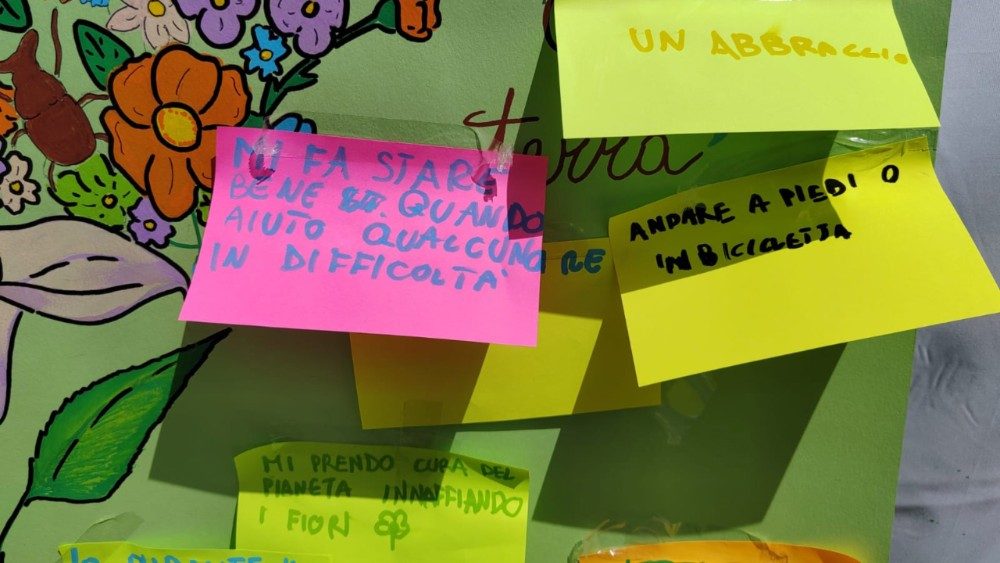 UN ABBRACCIO
terra
MI FA STARE
BENE QUANDO
AIUTO QUALCUNO
IN DIFFICOLTA'
RE
ANDARE A PIEDI O
IN BICICLETTA
MI PRENDO CURA DEL
PIANETA INNAFFIANDO
I FIORI